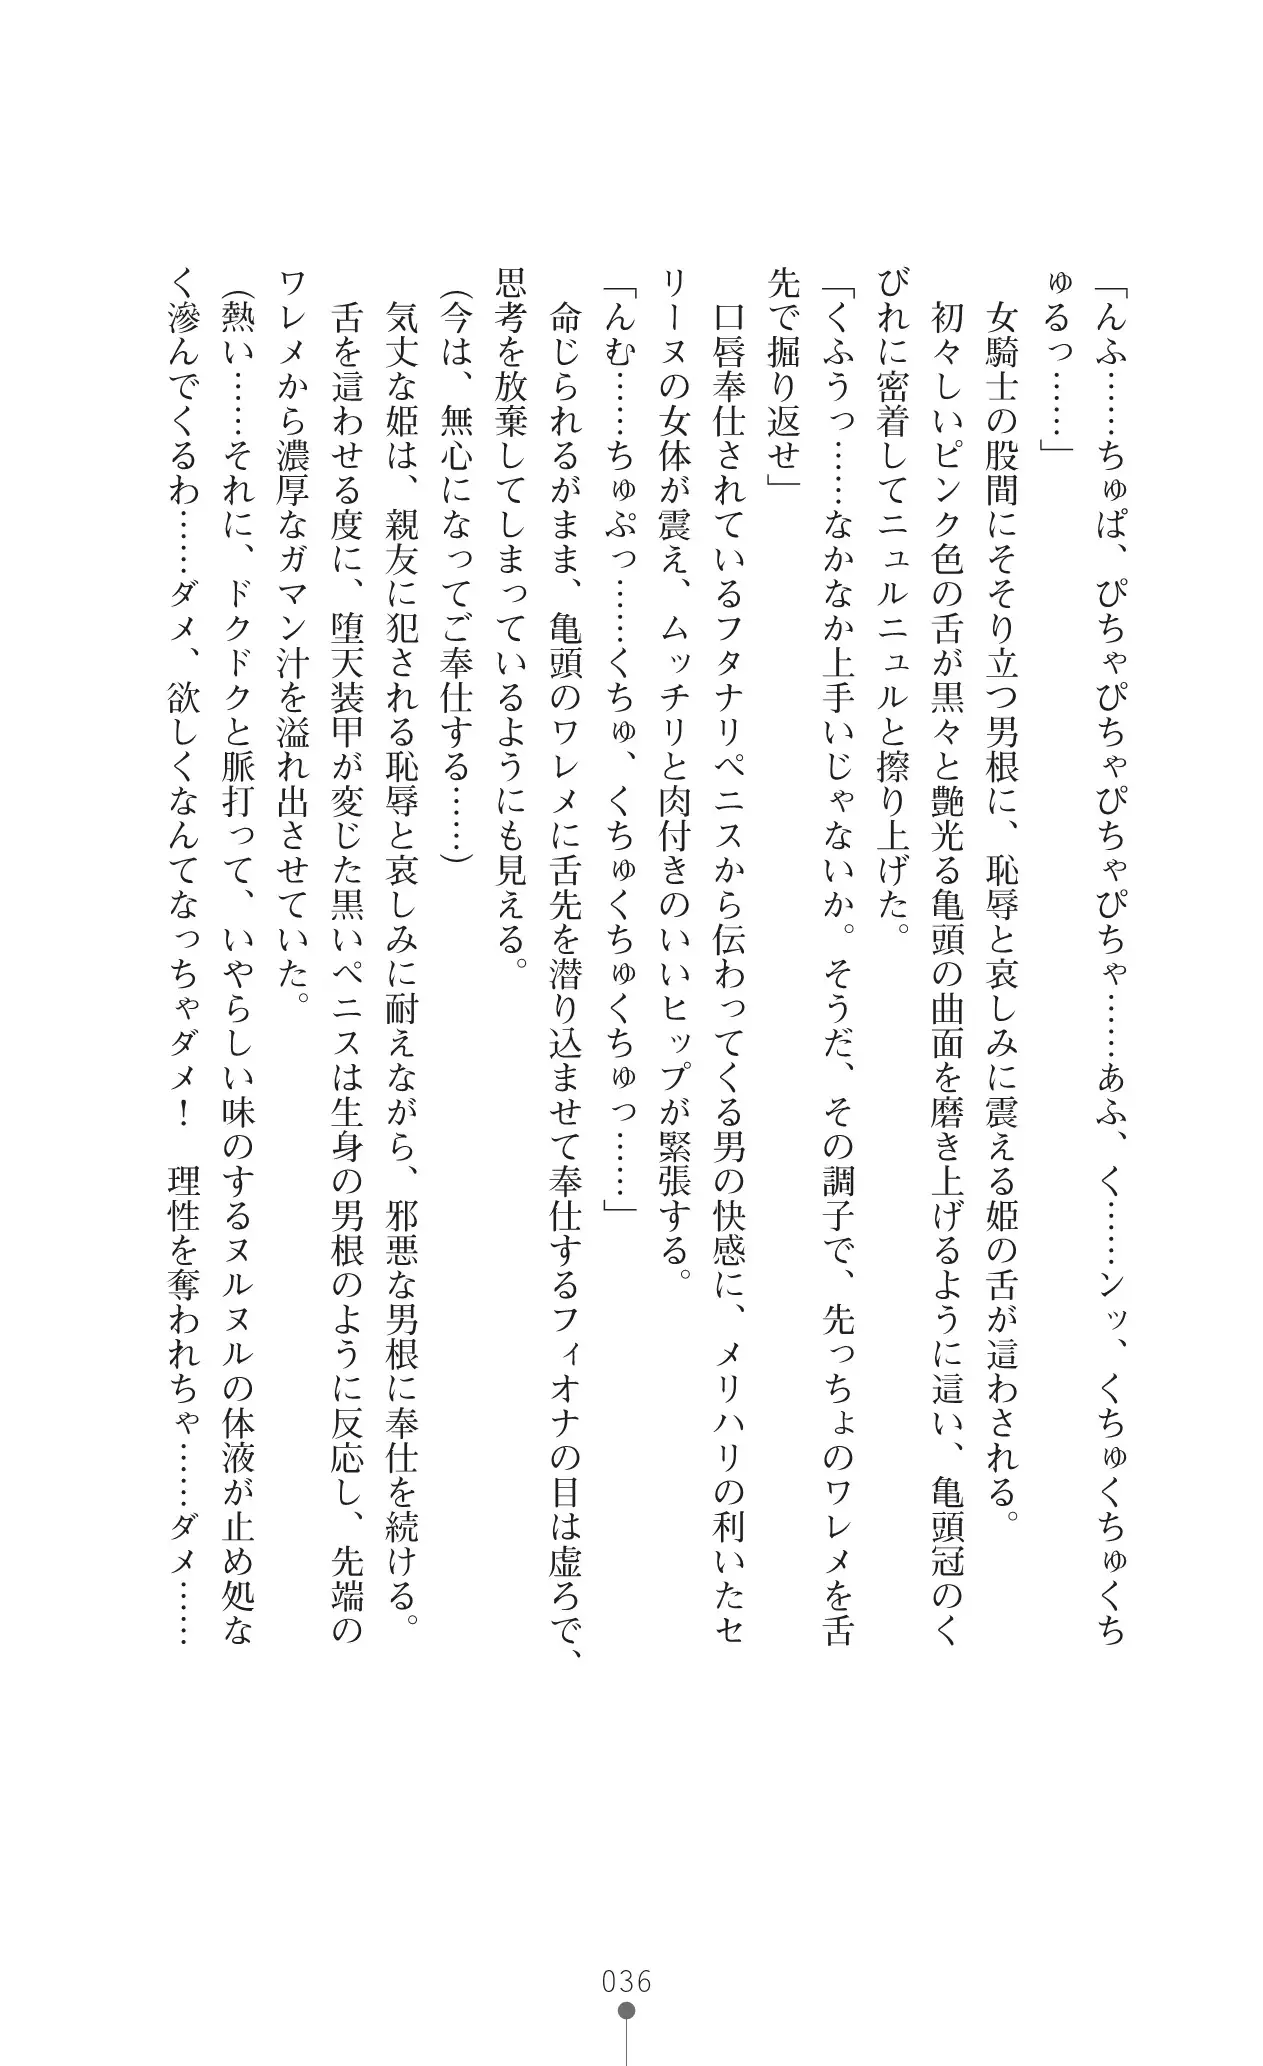 「んふ……ちゅぱ、ぴちゃぴちゃぴちゃぴちゃ……ぁふ、く……ンッ、くちゅくちゅくち
ゅるっ……」
　女騎士の股間にそそり立つ男根に、恥辱と哀しみに震える姫の舌が這わされる。
　初々しいピンク色の舌が黒々と艶光る亀頭の曲面を磨き上げるように這い、亀頭冠のく
びれに密着してニュルニュルと擦り上げた。
「くふうっ……なかなか上手いじゃないか。そうだ、その調子で、先っちょのワレメを舌
先で掘り返せ」
　口唇奉仕されているフタナリペニスから伝わってくる男の快感に、メリハリの利いたセ
リーヌの女体が震え、ムッチリと肉付きのいいヒップが緊張する。
「んむ……ちゅぷっ……くちゅ、くちゅくちゅくちゅっ……」
　命じられるがまま、亀頭のワレメに舌先を潜り込ませて奉仕するフィオナの目は虚ろで、
思考を放棄してしまっているようにも見える。
（今は、無心になってご奉仕する……）
　気丈な姫は、親友に犯される恥辱と哀しみに耐えながら、邪悪な男根に奉仕を続ける。
　舌を這わせる度に、堕天装甲が変じた黒いペニスは生身の男根のように反応し、先端の
ワレメから濃厚なガマン汁を溢れ出させていた。
（熱い……それに、ドクドクと脈打って、いやらしい味のするヌルヌルの体液が止め処な
く滲んでくるわ……ダメ、欲しくなんてなっちゃダメ！　理性を奪われちゃ……ダメ……
036